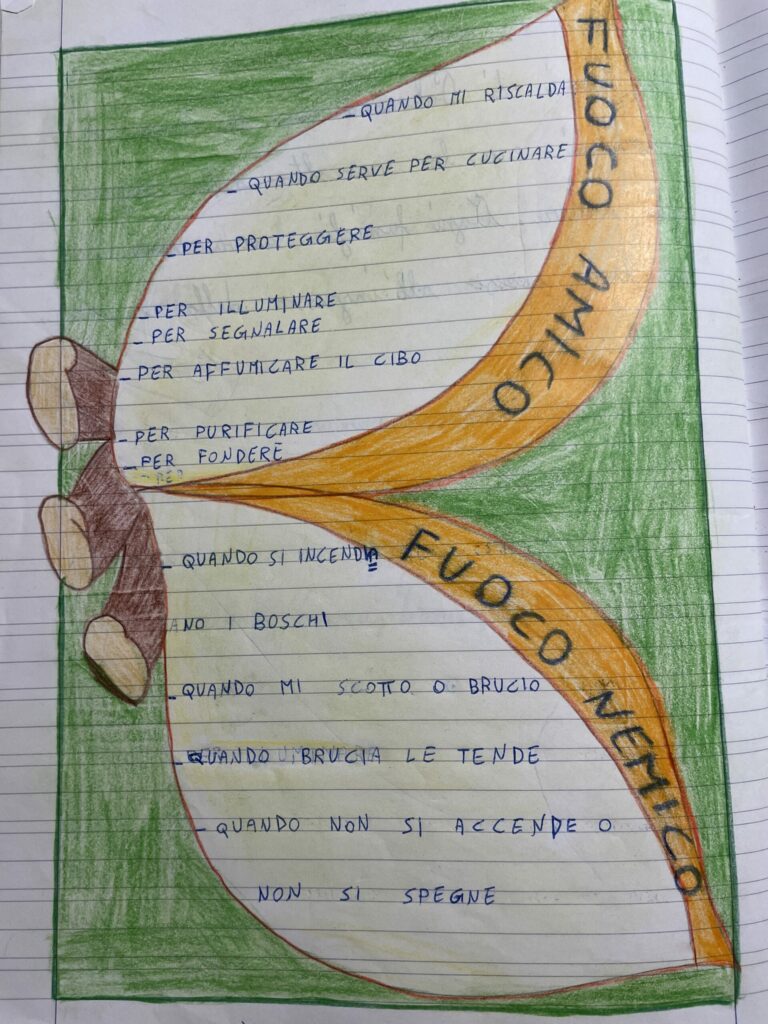 FUOCO AMICO
- QUANDO MI RISCALDA
- QUANDO SERVE PER CUCINARE
- PER PROTEGGERE
- PER ILLUMINARE
- PER SEGNALARE
- PER AFFUMICARE IL CIBO
- PER PURIFICARE
- PER FONDERE
FUOCO NEMICO
- QUANDO SI INCENDIA
ANO I BOSCHI
- QUANDO MI SCOTTO O BRUCIO
- QUANDO BRUCIA LE TENDE
- QUANDO NON SI ACCENDE O
NON SI SPEGNE